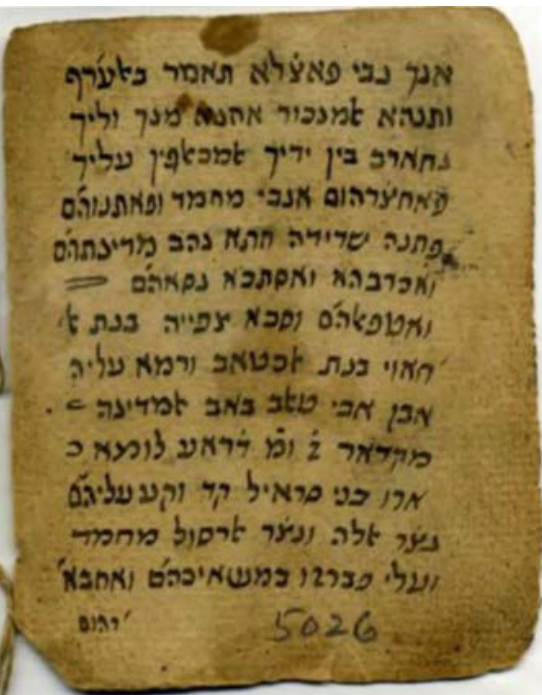 אנך נבי פאצ̇לא תאמר בﭏערף
ותנהא ﭏמנכור אחנא מנך וליך
נחארב בין ידיך ﭏמכﭏפין עליך
פאחצ̇רהום אנבי מחמד ופאתנוהם
פתנה שדידה חתא נהב מדינתהם
ואכרבהא ואסתבא נסאהם
ואטפﭏהם וסבא צפייה בנת א'
'חאוי בנת אכטאב ורמא עליה
אבן אבי טﭏב באב ﭏמדינה
מקדאר דראע
ארו בני סראיל קד וקע עליהם
נצר אלה ונצר ﭏרסול מחמד
ועלי פברזו במשאיכהם ואחבא'
'רהום 5026